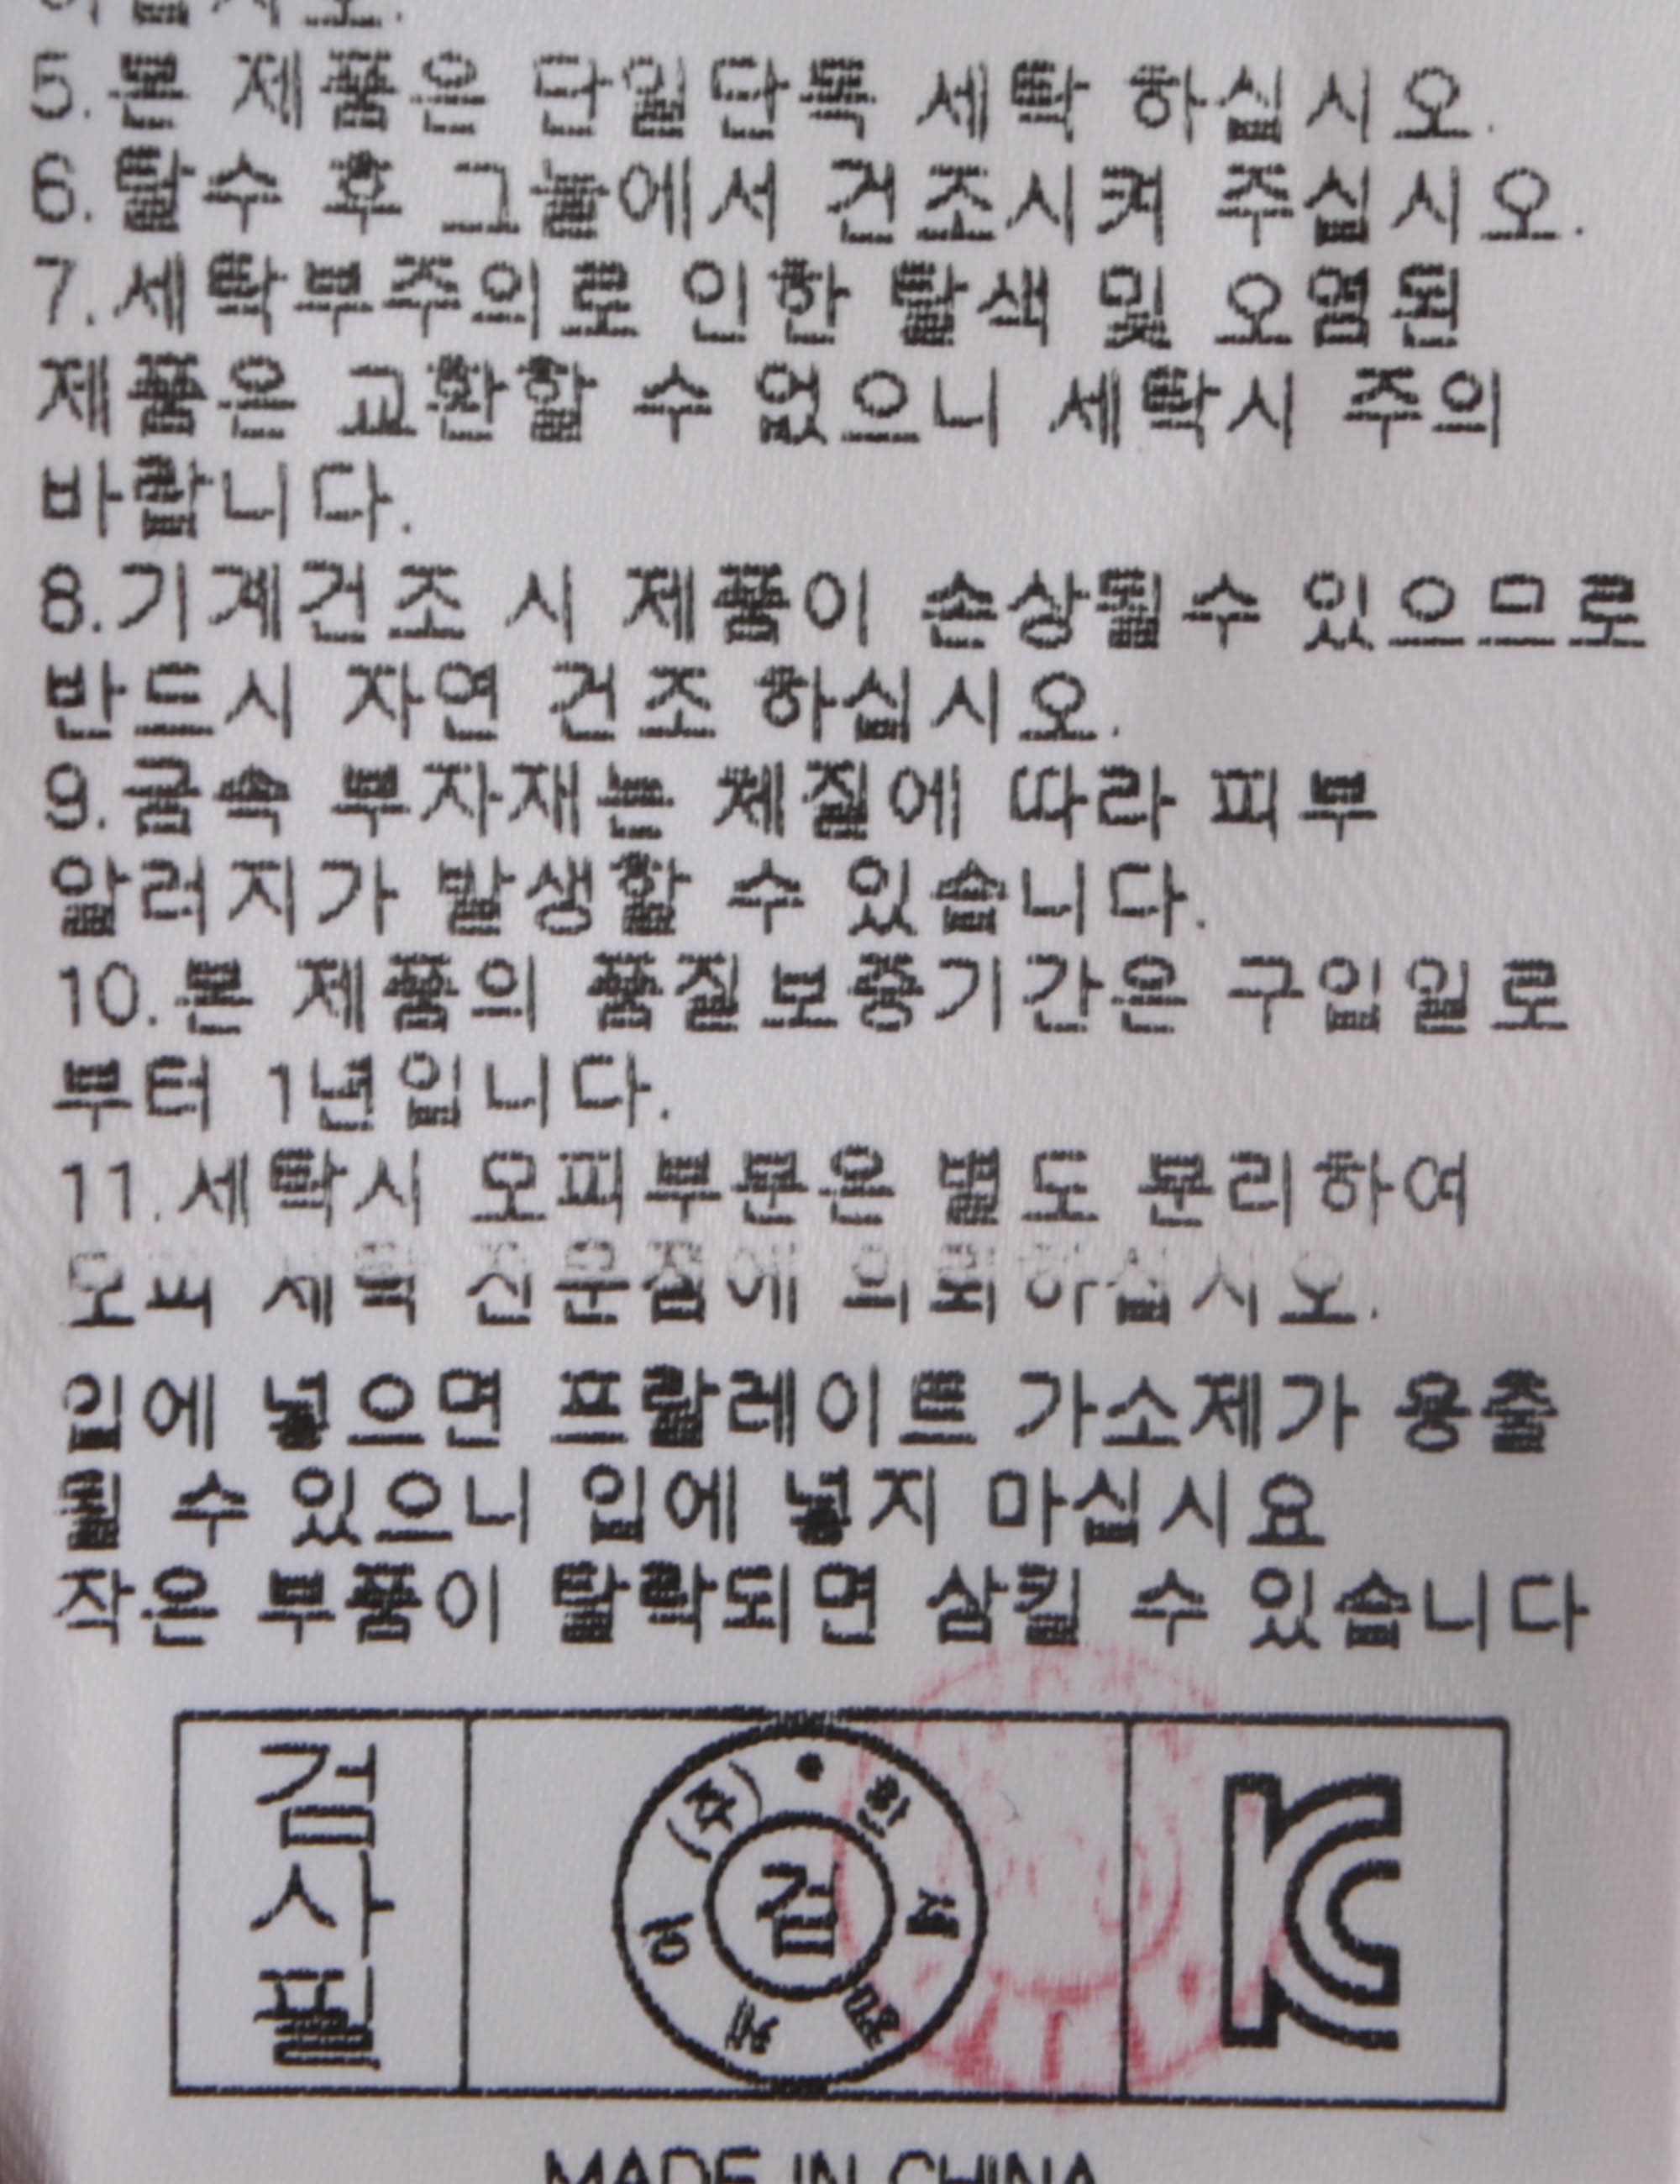 5.본 제품은 단일단독 세탁 하십시오.
6.탈수 후 그늘에서 건조시켜 주십시오.
7.세탁부주의로 인한 탈색 및 오염된
제품은 교환할 수 없으니 세탁시 주의
바랍니다.
8.기계건조 시 제품이 손상될수 있으므로
반드시 자연 건조 하십시오.
9.금속 부자재는 체질에 따라 피부
알러지가 발생할 수 있습니다.
10.본 제품의 품질보증기간은 구입일로
부터 1년입니다.
11.세탁시 모피부분은 별도 분리하여
모피 세탁 전문점에 의뢰하십시오.
입에 넣으면 프탈레이트 가소제가 용출
될 수 있으니 입에 넣지 마십시요
작은 부품이 탈락되면 삼킬 수 있습니다
검사필
(주)
검
KC
MADE IN CHINA